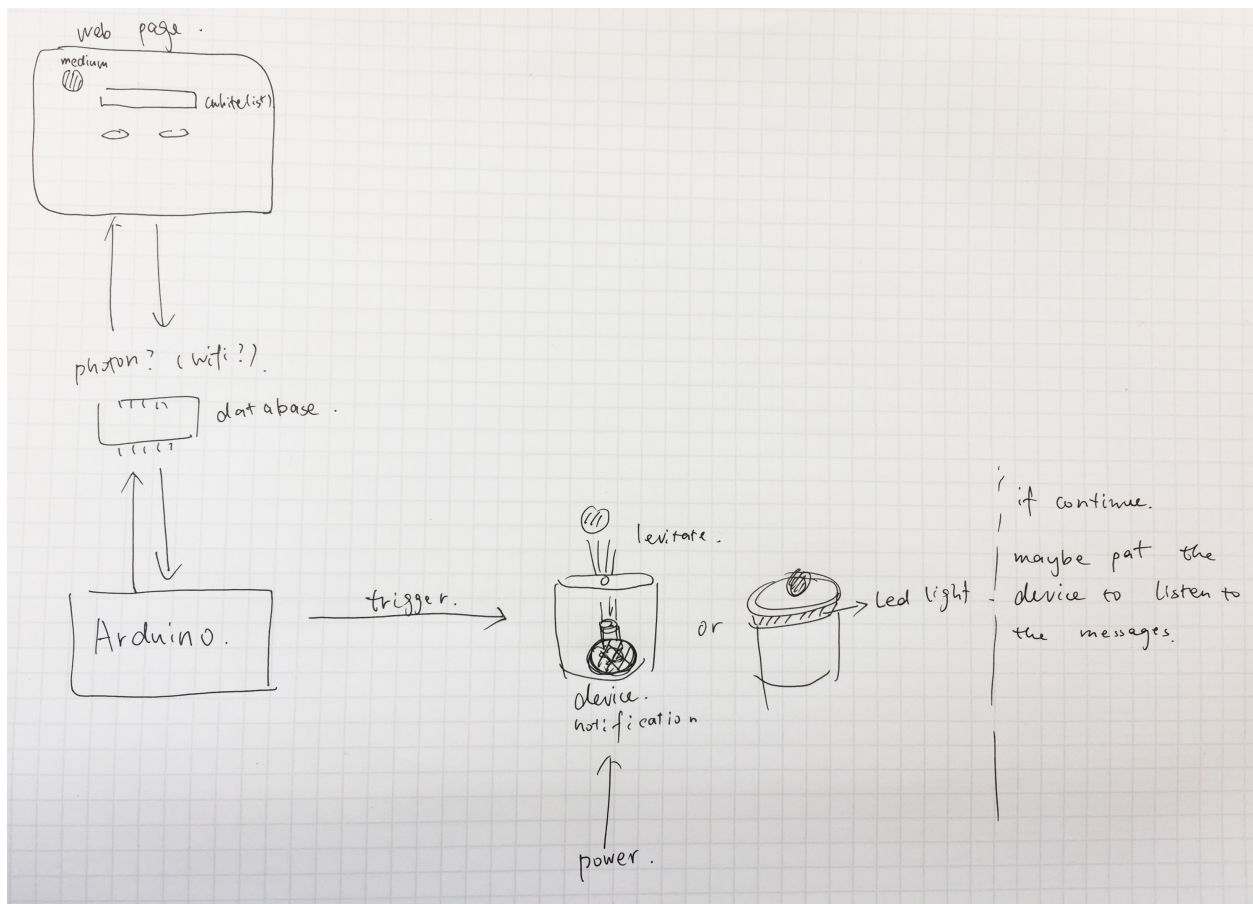 web page.
medium
(whitelist)
photon? (wifi?).
database.
Arduino.
trigger.
levitate.
device.
notification
power.
or
Led light
if continue.
maybe pat the
device to listen to
the messages.